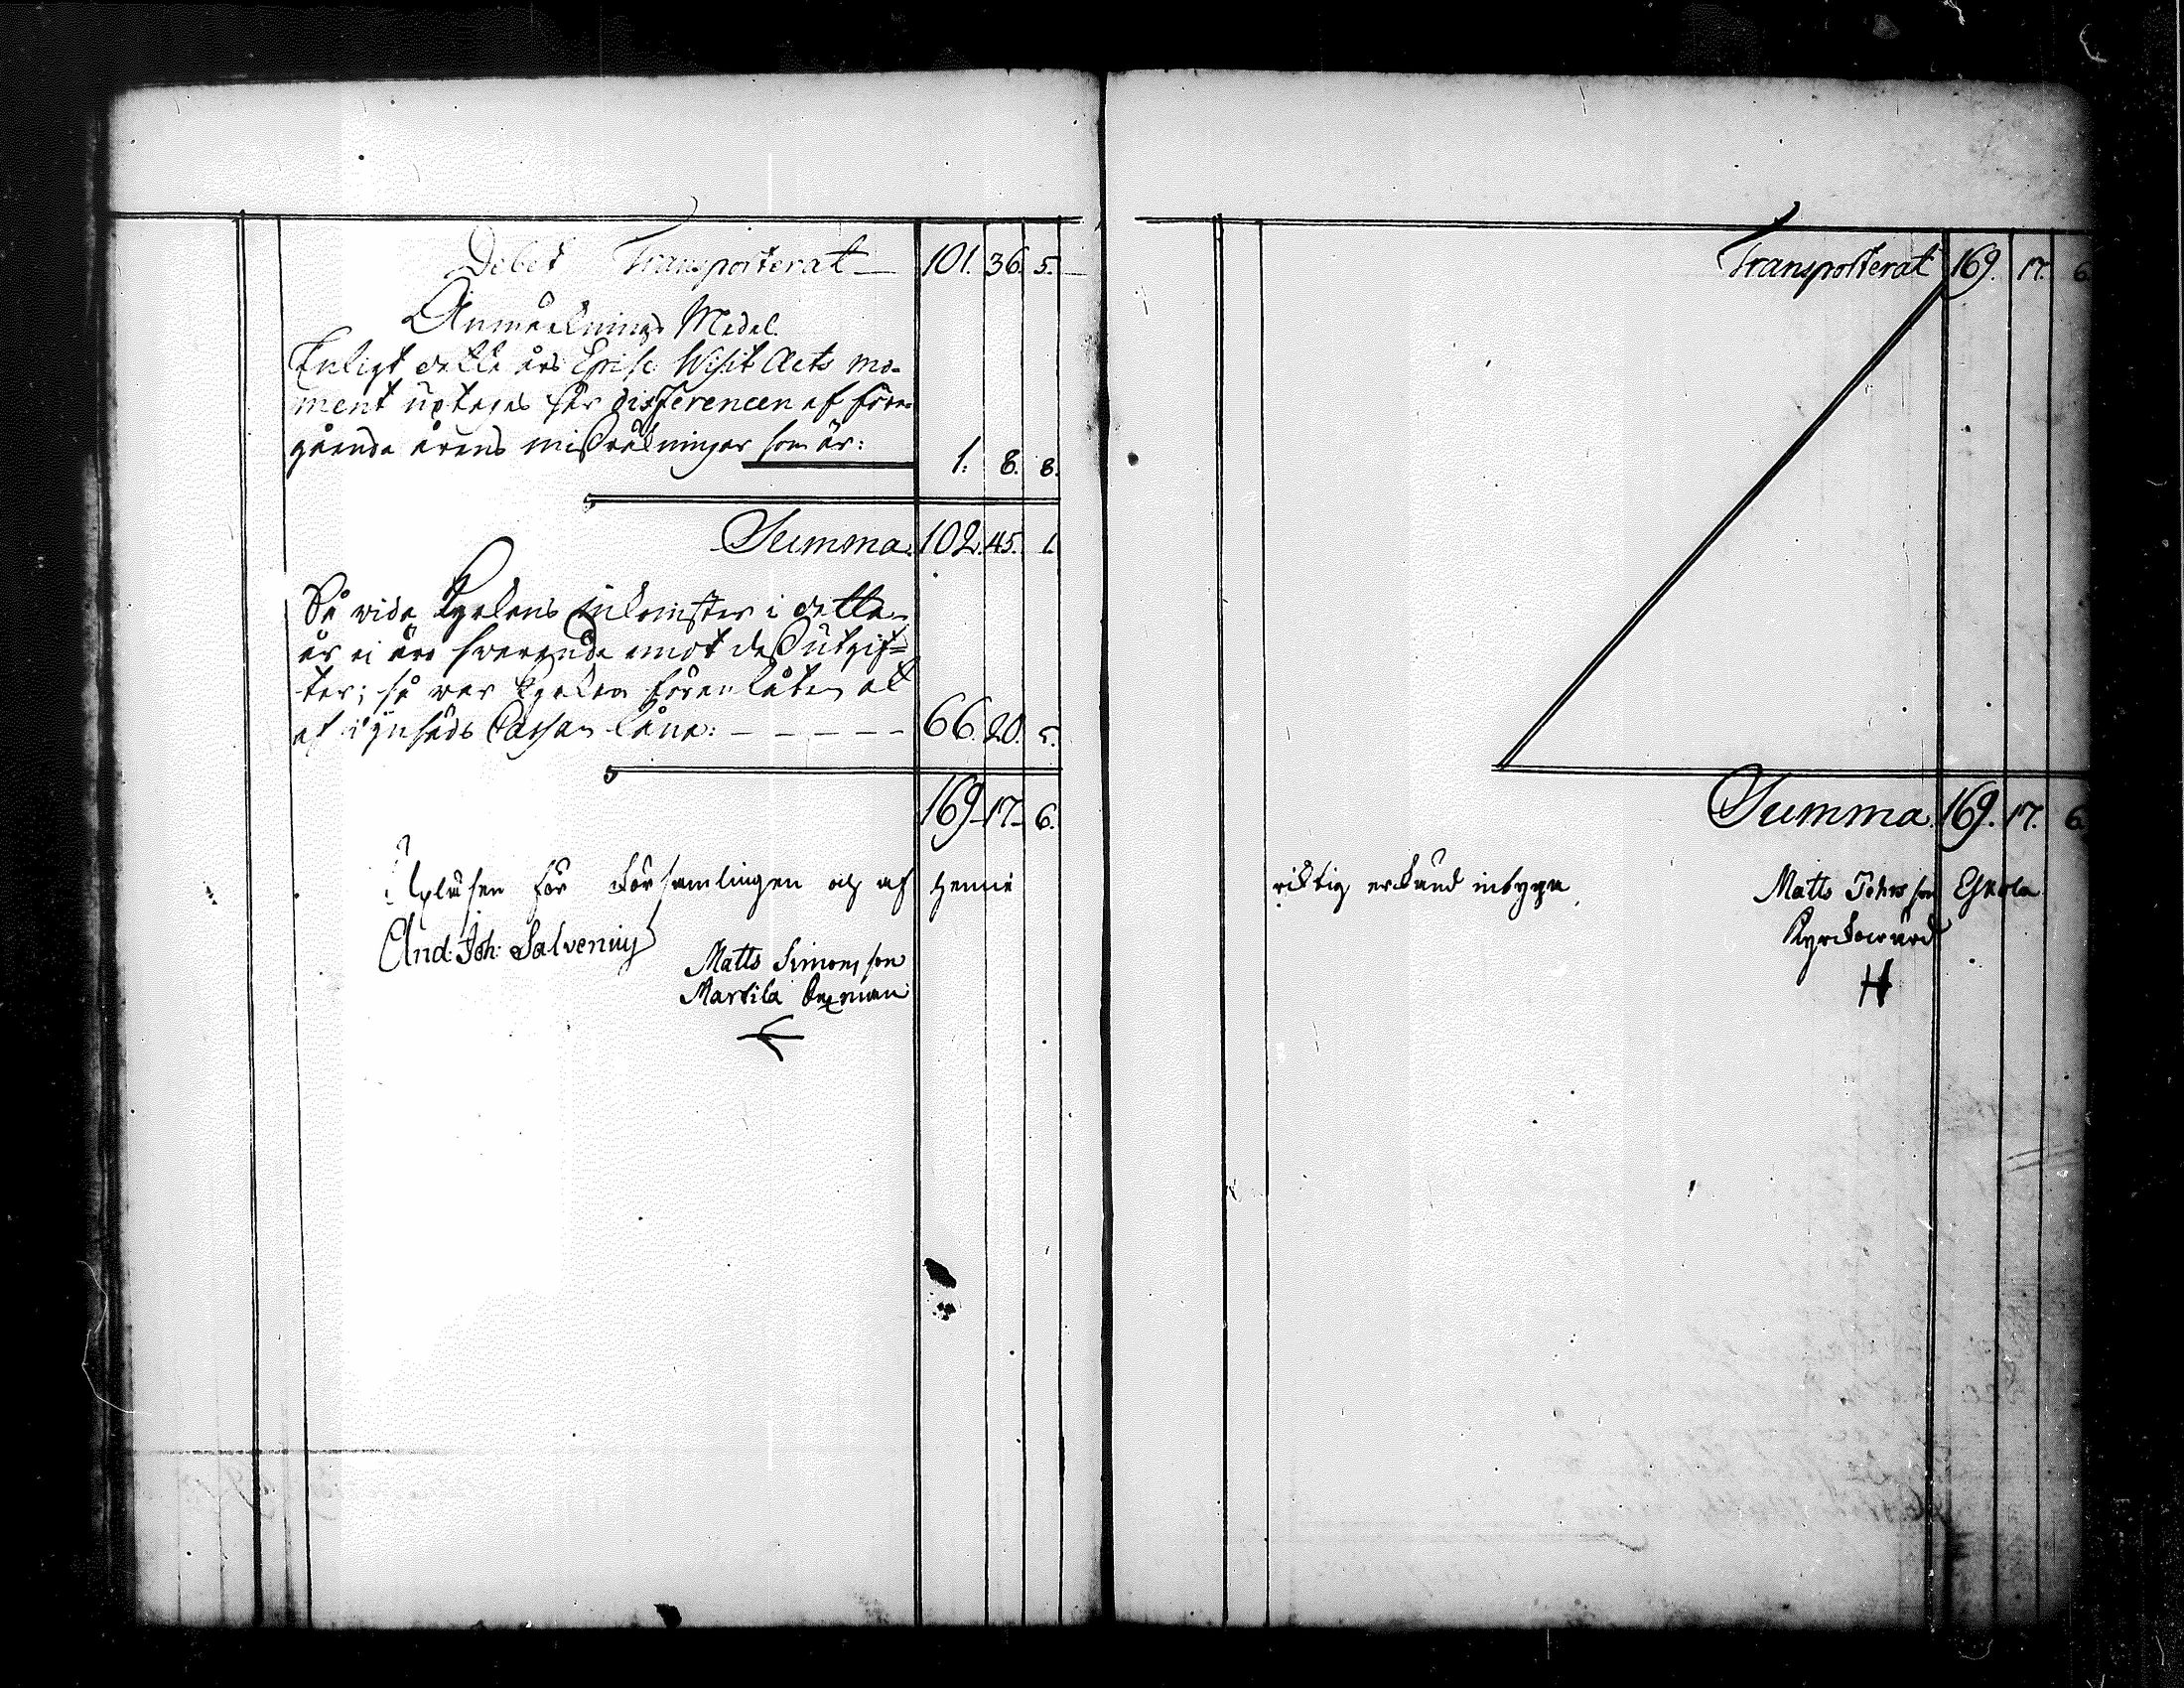 Debet Transporterat — 101. 36. 5.
Anmärknings Medel.
Enligt detta års Episc. Visit Acts mo-
ment uptages här differencen af före-
gående årens missräkningar som är: 1. 8. 8.
Summa. 102. 45. 1.
Så vida Kyrkans inkomster i detta
år ej äro svarande emot dess utgif-
ter; så var Kyrkan föranlåten at
af Cassan låna: — — — — — 66. 20. 5.
169. 17. 6.
Upläsen för Församlingen och af henne
And: Joh: Salvenius
Matts Simonsson
Martila
Transporterat 169. 17. 6.
Summa 169. 17. 6.
riktig erkänd intygar
Matts Johansson Eskola
Kyrckovärd
H